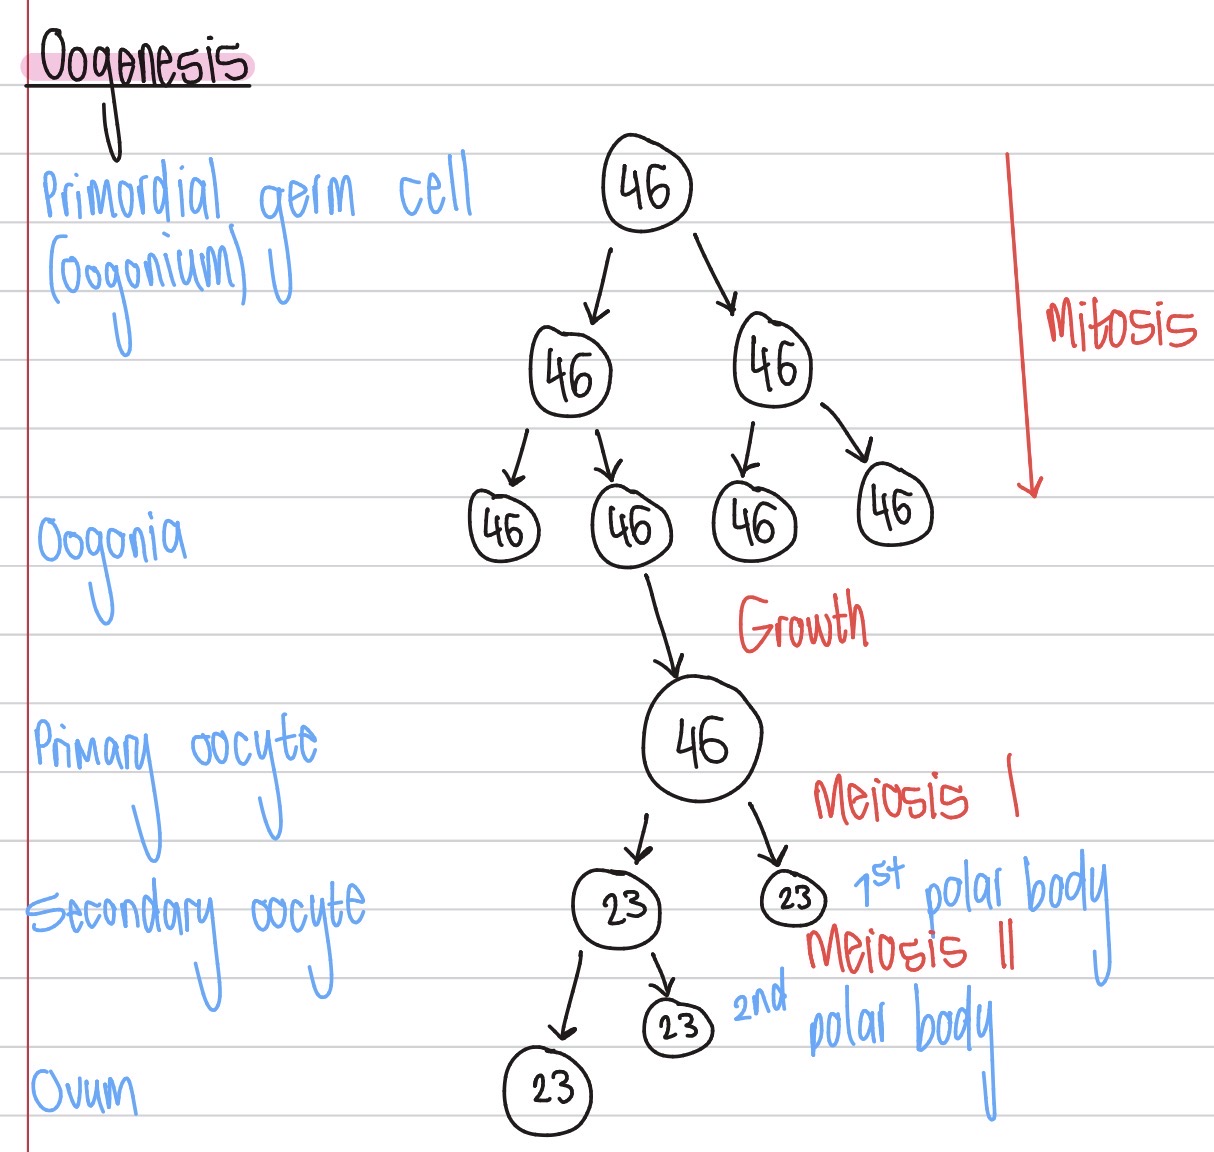 Oogenesis
46
Primordial germ cell
(oogonium)
46 46
Mitosis
Oogonia
46 46 46 46
Growth
Primary oocyte
46
Meiosis I
Secondary oocyte
23 23 1st polar body
Meiosis II
23 2nd polar body
Ovum
23